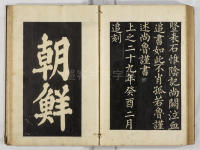 竪表石惟陰記尚闕泣血
追書如此不肖孤若魯謹
述尚魯謹書
上之二十九年癸酉二月
追刻
朝鮮